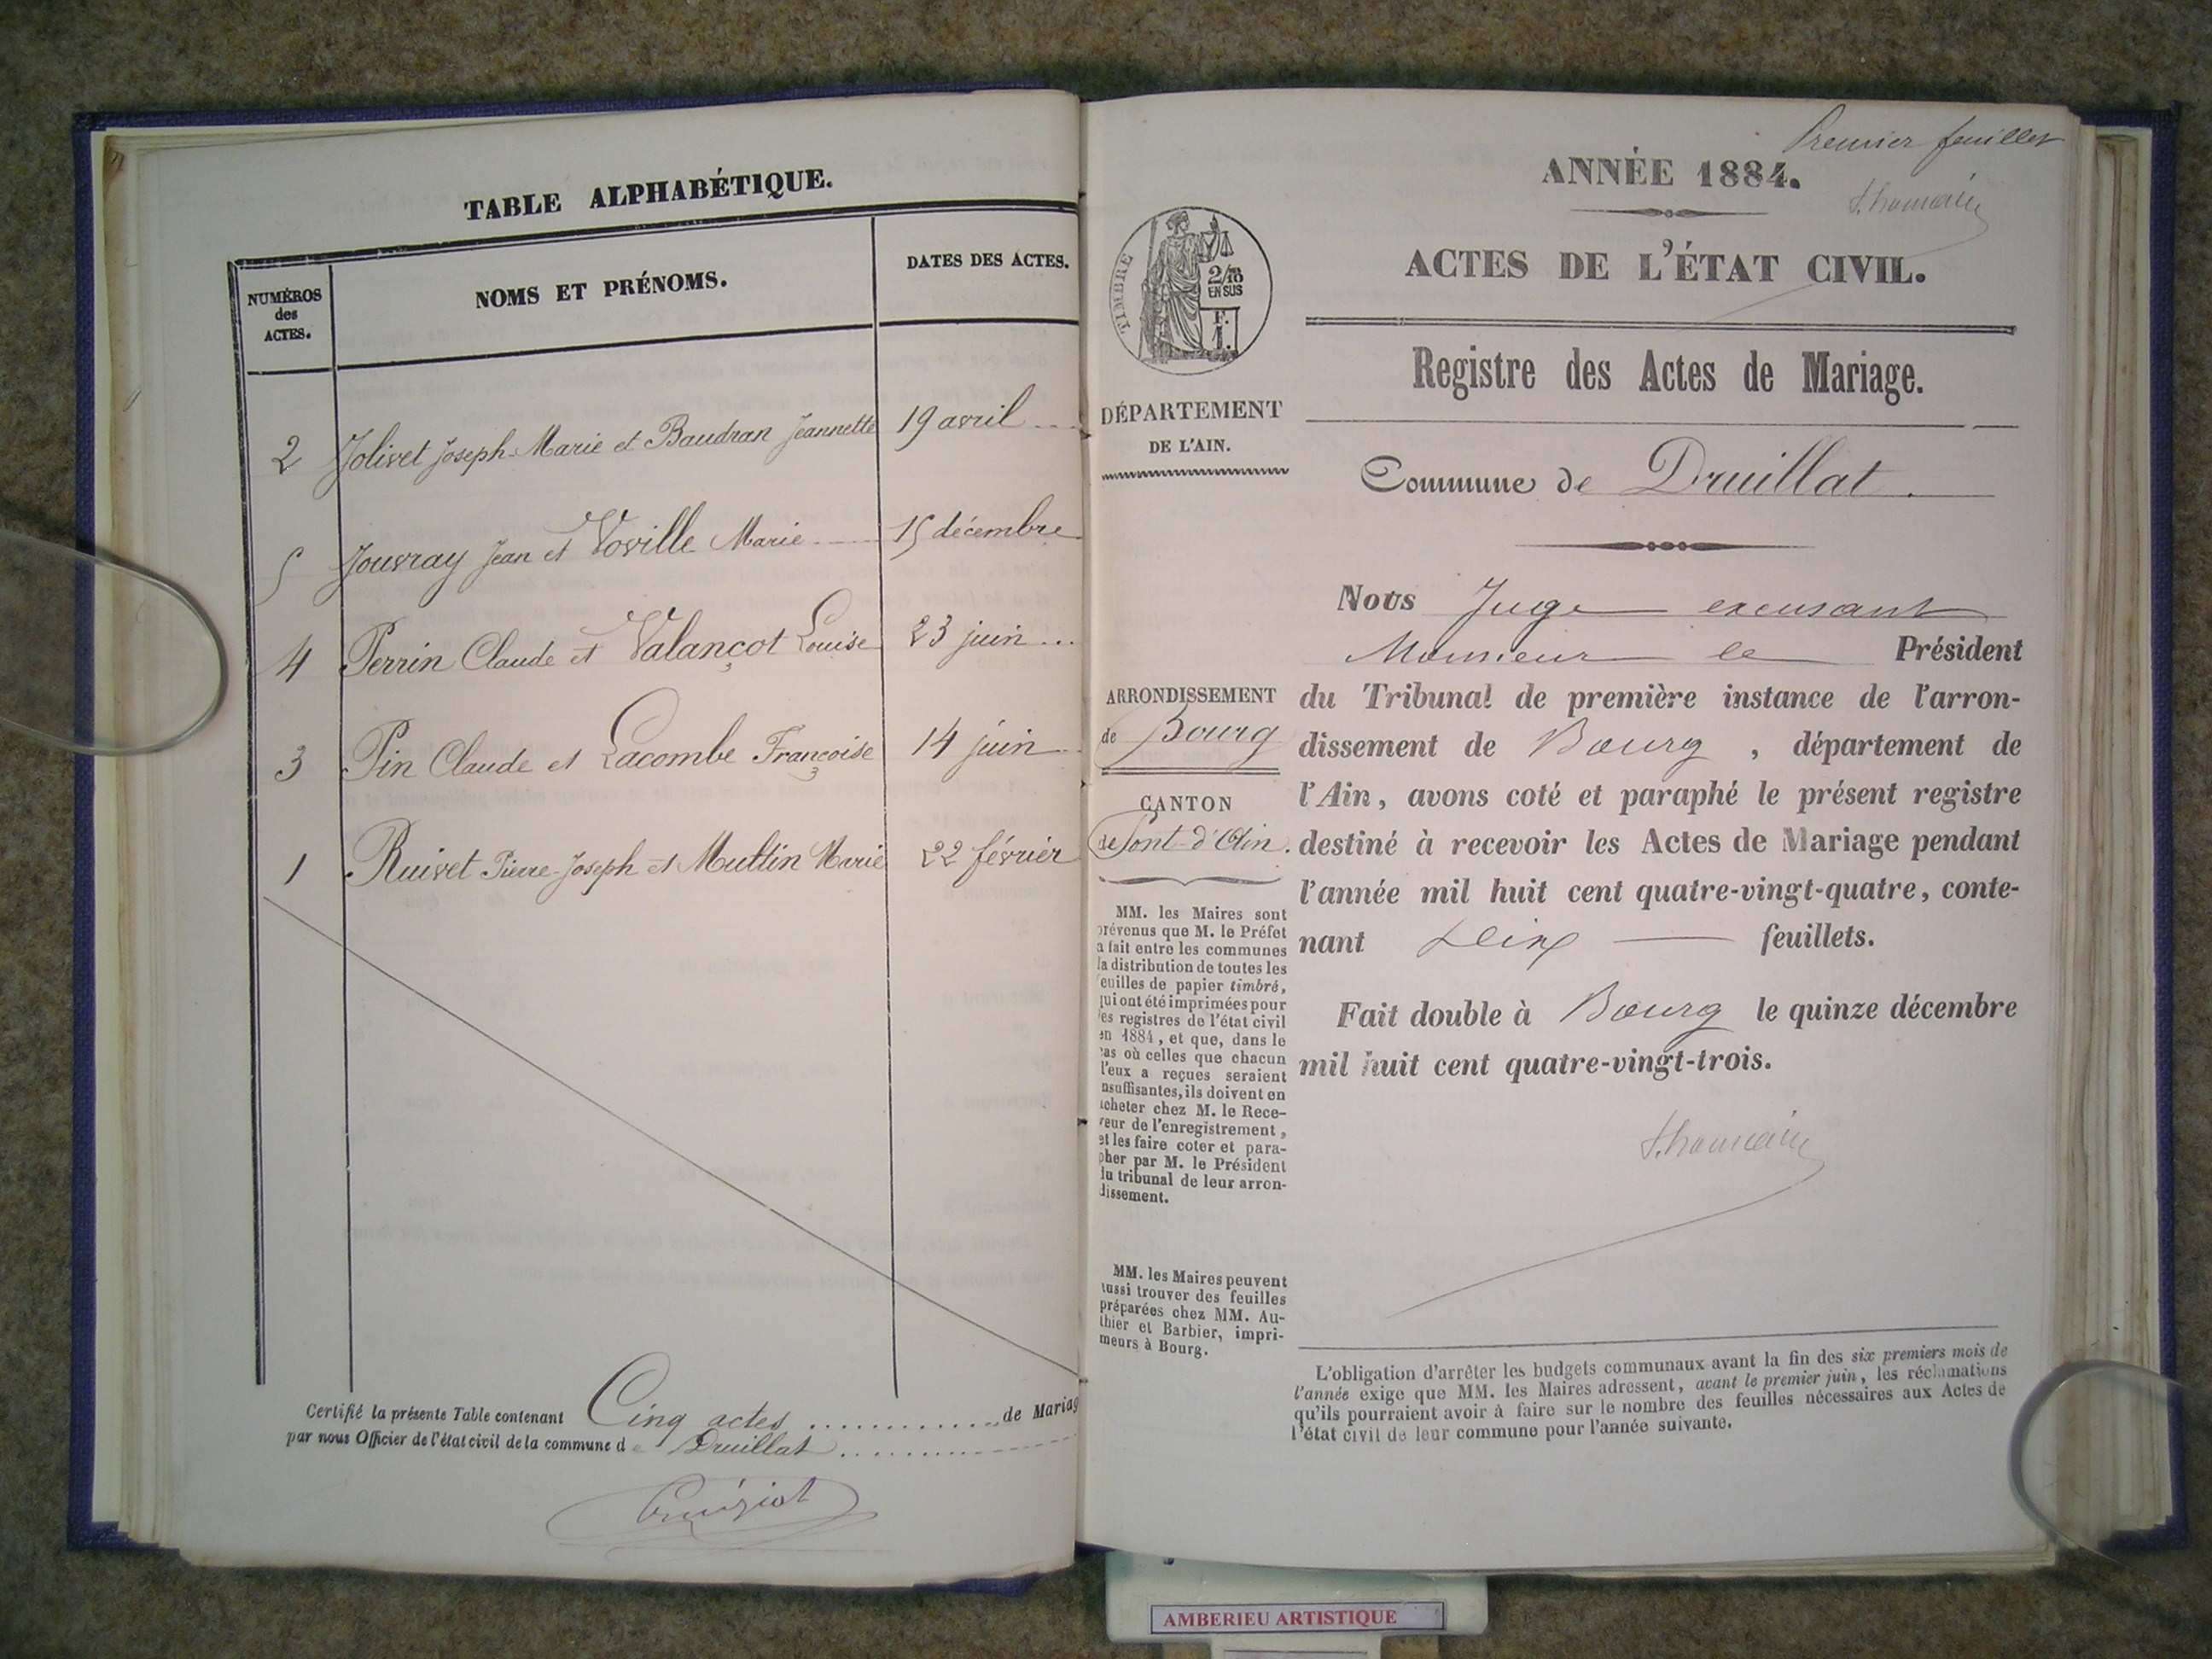 TABLE ALPHABÉTIQUE.
NUMÉROS des ACTES.
NOMS ET PRÉNOMS.
DATES DES ACTES.
2 Jolivet Joseph-Marie et Baudran Jeannette 19 avril
5 Jouvray Jean et Voville Marie 15 décembre
4 Perrin Claude et Valançot Louise 23 juin
3 Pin Claude et Lacombe Françoise 14 juin
1 Ruivet Pierre-Joseph et Muttin Marie 22 février
Certifié la présente Table contenant Cinq actes de Mariag
par nous Officier de l'état civil de la commune de Druillat
Premier feuillet
ANNÉE 1884.
ACTES DE L'ÉTAT CIVIL.
TIMBRE
2/10
EN SUS
F.
1.
Registre des Actes de Mariage.
DÉPARTEMENT
DE L'AIN.
Commune de Druillat.
ARRONDISSEMENT
de Bourg
CANTON
de Pont-d'Ain.
MM. les Maires sont
prévenus que M. le Préfet
a fait entre les communes
la distribution de toutes les
feuilles de papier timbré,
qui ont été imprimées pour
les registres de l'état civil
en 1884, et que, dans le
cas où celles que chacun
d'eux a reçues seraient
insuffisantes, ils doivent en
acheter chez M. le Rece-
veur de l'enregistrement,
et les faire coter et para-
pher par M. le Président
du tribunal de leur arron-
dissement.
MM. les Maires peuvent
aussi trouver des feuilles
préparées chez MM. Au-
thier et Barbier, impri-
meurs à Bourg.
Nous Juge excusant
Monsieur le Président
du Tribunal de première instance de l'arron-
dissement de Bourg, département de
l'Ain, avons coté et paraphé le présent registre
destiné à recevoir les Actes de Mariage pendant
l'année mil huit cent quatre-vingt-quatre, conte-
nant feuillets.
Fait double à Bourg le quinze décembre
mil huit cent quatre-vingt-trois.
L'obligation d'arrêter les budgets communaux avant la fin des six premiers mois de
l'année exige que MM. les Maires adressent, avant le premier juin, les réclamations
qu'ils pourraient avoir à faire sur le nombre des feuilles nécessaires aux Actes de
l'état civil de leur commune pour l'année suivante.
AMBERIEU ARTISTIQUE